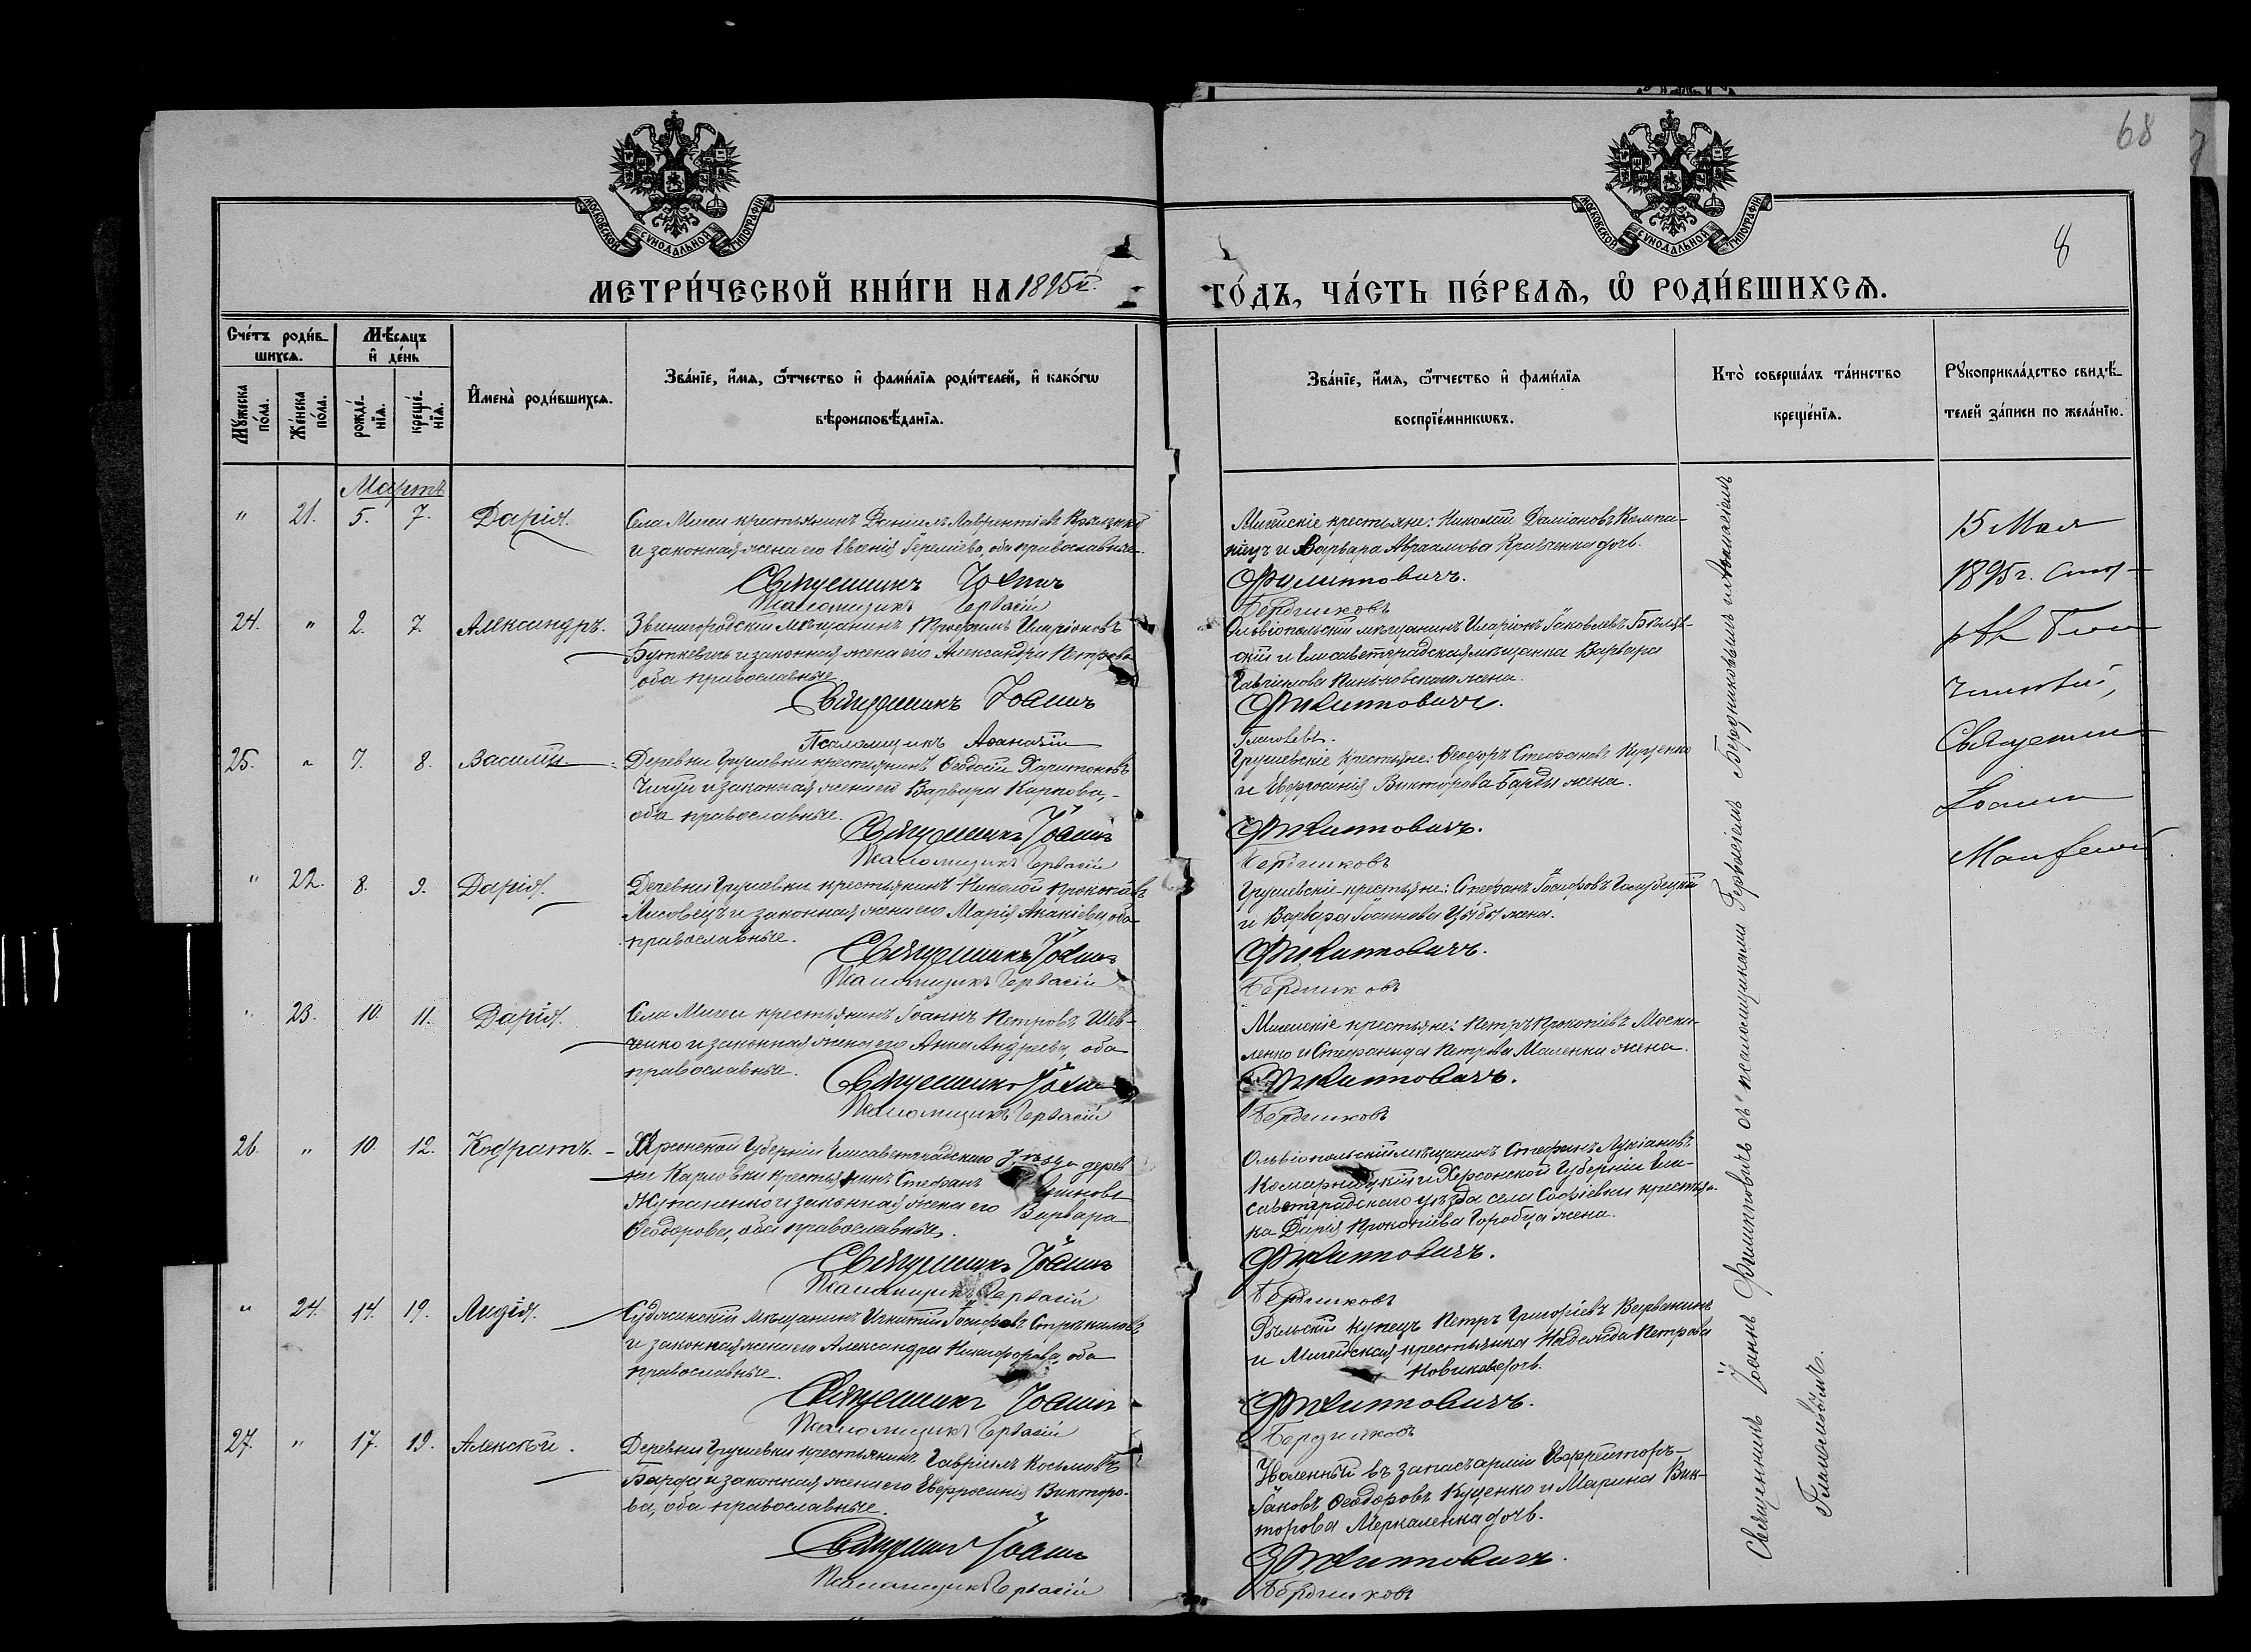 68
8
МОСКОВСКОЙ СѴНОДАЛЬНОЙ ТИПОГРАФІИ
МОСКОВСКОЙ СѴНОДАЛЬНОЙ ТИПОГРАФІИ
МЕТРИ́ЧЕСКОЙ КНИ́ГИ НА 1895й. ГО́ДЪ, ЧА́СТЬ ПЕ́РВАѦ, Ѡ РОДИ́ВШИХСѦ.
Сче́тъ роди́вшихсѧ.
Мꙋ́жеска по́ла.
Же́нска по́ла.
Мѣ́сѧцъ и҆ де́нь
рожде́нїѧ.
креще́нїѧ.
И҆мена̀ роди́вшихсѧ.
Зва́нїе, и҆́мѧ, ѻ҆́тчество и҆ фами́лїѧ роди́телей, и҆ како́гѡ
вѣроисповѣ́данїѧ.
Зва́нїе, и҆́мѧ, ѻ҆́тчество и҆ фами́лїѧ
воспрїе́мникѡвъ.
Кто̀ соверша́лъ та́инство
креще́нїѧ.
Рꙋкоприкла́дство свидѣ́-
телей за́писи по жела́нїю.
Мартъ
" 21. 5. 7. Дарія.
Села Мигеи крестьянинъ Даніилъ Лаврентіевъ
и законная жена его Евгенія Іереміева, оба православные.
Священникъ Іоаннъ
Псаломщикъ Гервасій
Мигейскіе крестьяне: Николай Даміановъ Компа-
ніецъ и Варвара Авраамова Кравченка дочь.
Филипповичъ.
Бердниковъ
24. " 2. 7. Александръ.
Звенигородскій мѣщанинъ Трофимъ Иларіоновъ
Буткевичъ и законная жена его Александра Петрова
оба православные
Священникъ Іоаннъ
Псаломщикъ Аѳанасій
Ольвіопольскій мѣщанинъ Иларіонъ Іаковлевъ Бѣлец-
скій и Елисаветградская мѣщанка Варвара
Гавріилова жена.
Филипповичъ.
25. " 7. 8. Василій.
Деревни Грушевки крестьянинъ Ѳеодосій Харитоновъ
и законная жена его Варвара Карпова,
оба православные.
Священникъ Іоаннъ
Псаломщикъ Гервасій
Грушевскіе крестьяне: Ѳеодоръ Стефановъ Куценко
и Евфросинія Викторова Барды жена.
Филипповичъ.
Бердниковъ
" 22. 8. 9. Дарія.
Деревни Грушевки крестьянинъ Николай Прокопіевъ
Лисовецъ и законная жена его Марія Акакіева, оба
православные.
Священникъ Іоаннъ
Псаломщикъ Гервасій
Грушевскіе крестьяне: Стефанъ Іосифовъ Голубецкій
и Варвара Іоаннова Цыбы жена.
Филипповичъ.
Бердниковъ
" 23. 10. 11. Дарія.
Села Мигеи крестьянинъ Іоаннъ Петровъ Шев-
ченко и законная жена его Анна Андреева, оба
православные.
Священникъ Іоаннъ
Псаломщикъ Гервасій
Мигейскіе крестьяне: Петръ Прокопіевъ Моска-
ленко и Стефанида Петрова Маленка жена.
Филипповичъ.
Бердниковъ
26. " 10. 12. Кодратъ.
Херсонской Губерніи Елисаветградского уѣзда дерев
ни Карловки крестьянинъ Стефанъ
Жупаненко и законная жена его Варвара
Ѳеодорова, оба православные.
Священникъ Іоаннъ
Псаломщикъ Гервасій
Ольвіопольскій мѣщанинъ Стефанъ Лукіановъ
Комарницкій и Херсонской Губерніи Ели-
саветградского уѣзда села Софіевки крестьян-
ка Дарія Прокопіева Горобца жена.
Филипповичъ.
Бердниковъ
" 24. 14. 19. Лидія.
Суджинскій мѣщанинъ Игнатій Іосифовъ Стрѣкаловъ
и законная жена его Александра Никифорова, оба
православные.
Священникъ Іоаннъ
Псаломщикъ Гервасій
Рыльскій купецъ Петръ Григоріевъ
и Мигейская крестьянка Надежда Петрова
Новикова дочь.
Филипповичъ.
Бердниковъ
27. " 17. 19. Алексѣй.
Деревни Грушевки крестьянинъ Гавріилъ Косьмовъ
Барда и законная жена его Евфросинія Викторо-
ва, оба православные.
Священникъ Іоаннъ
Псаломщикъ Гервасій
Уволенный въ запасъ арміи Ефрейторъ
Іаковъ Ѳеодоровъ Куценко и Марина Вик-
торова дочь.
Филипповичъ.
Бердниковъ
Священникъ Іоаннъ Филипповичъ съ псаломщиками Гервасіемъ Бердниковымъ и Аѳанасіемъ
15 Мая
1895 г.
Священникъ
Іоаннъ